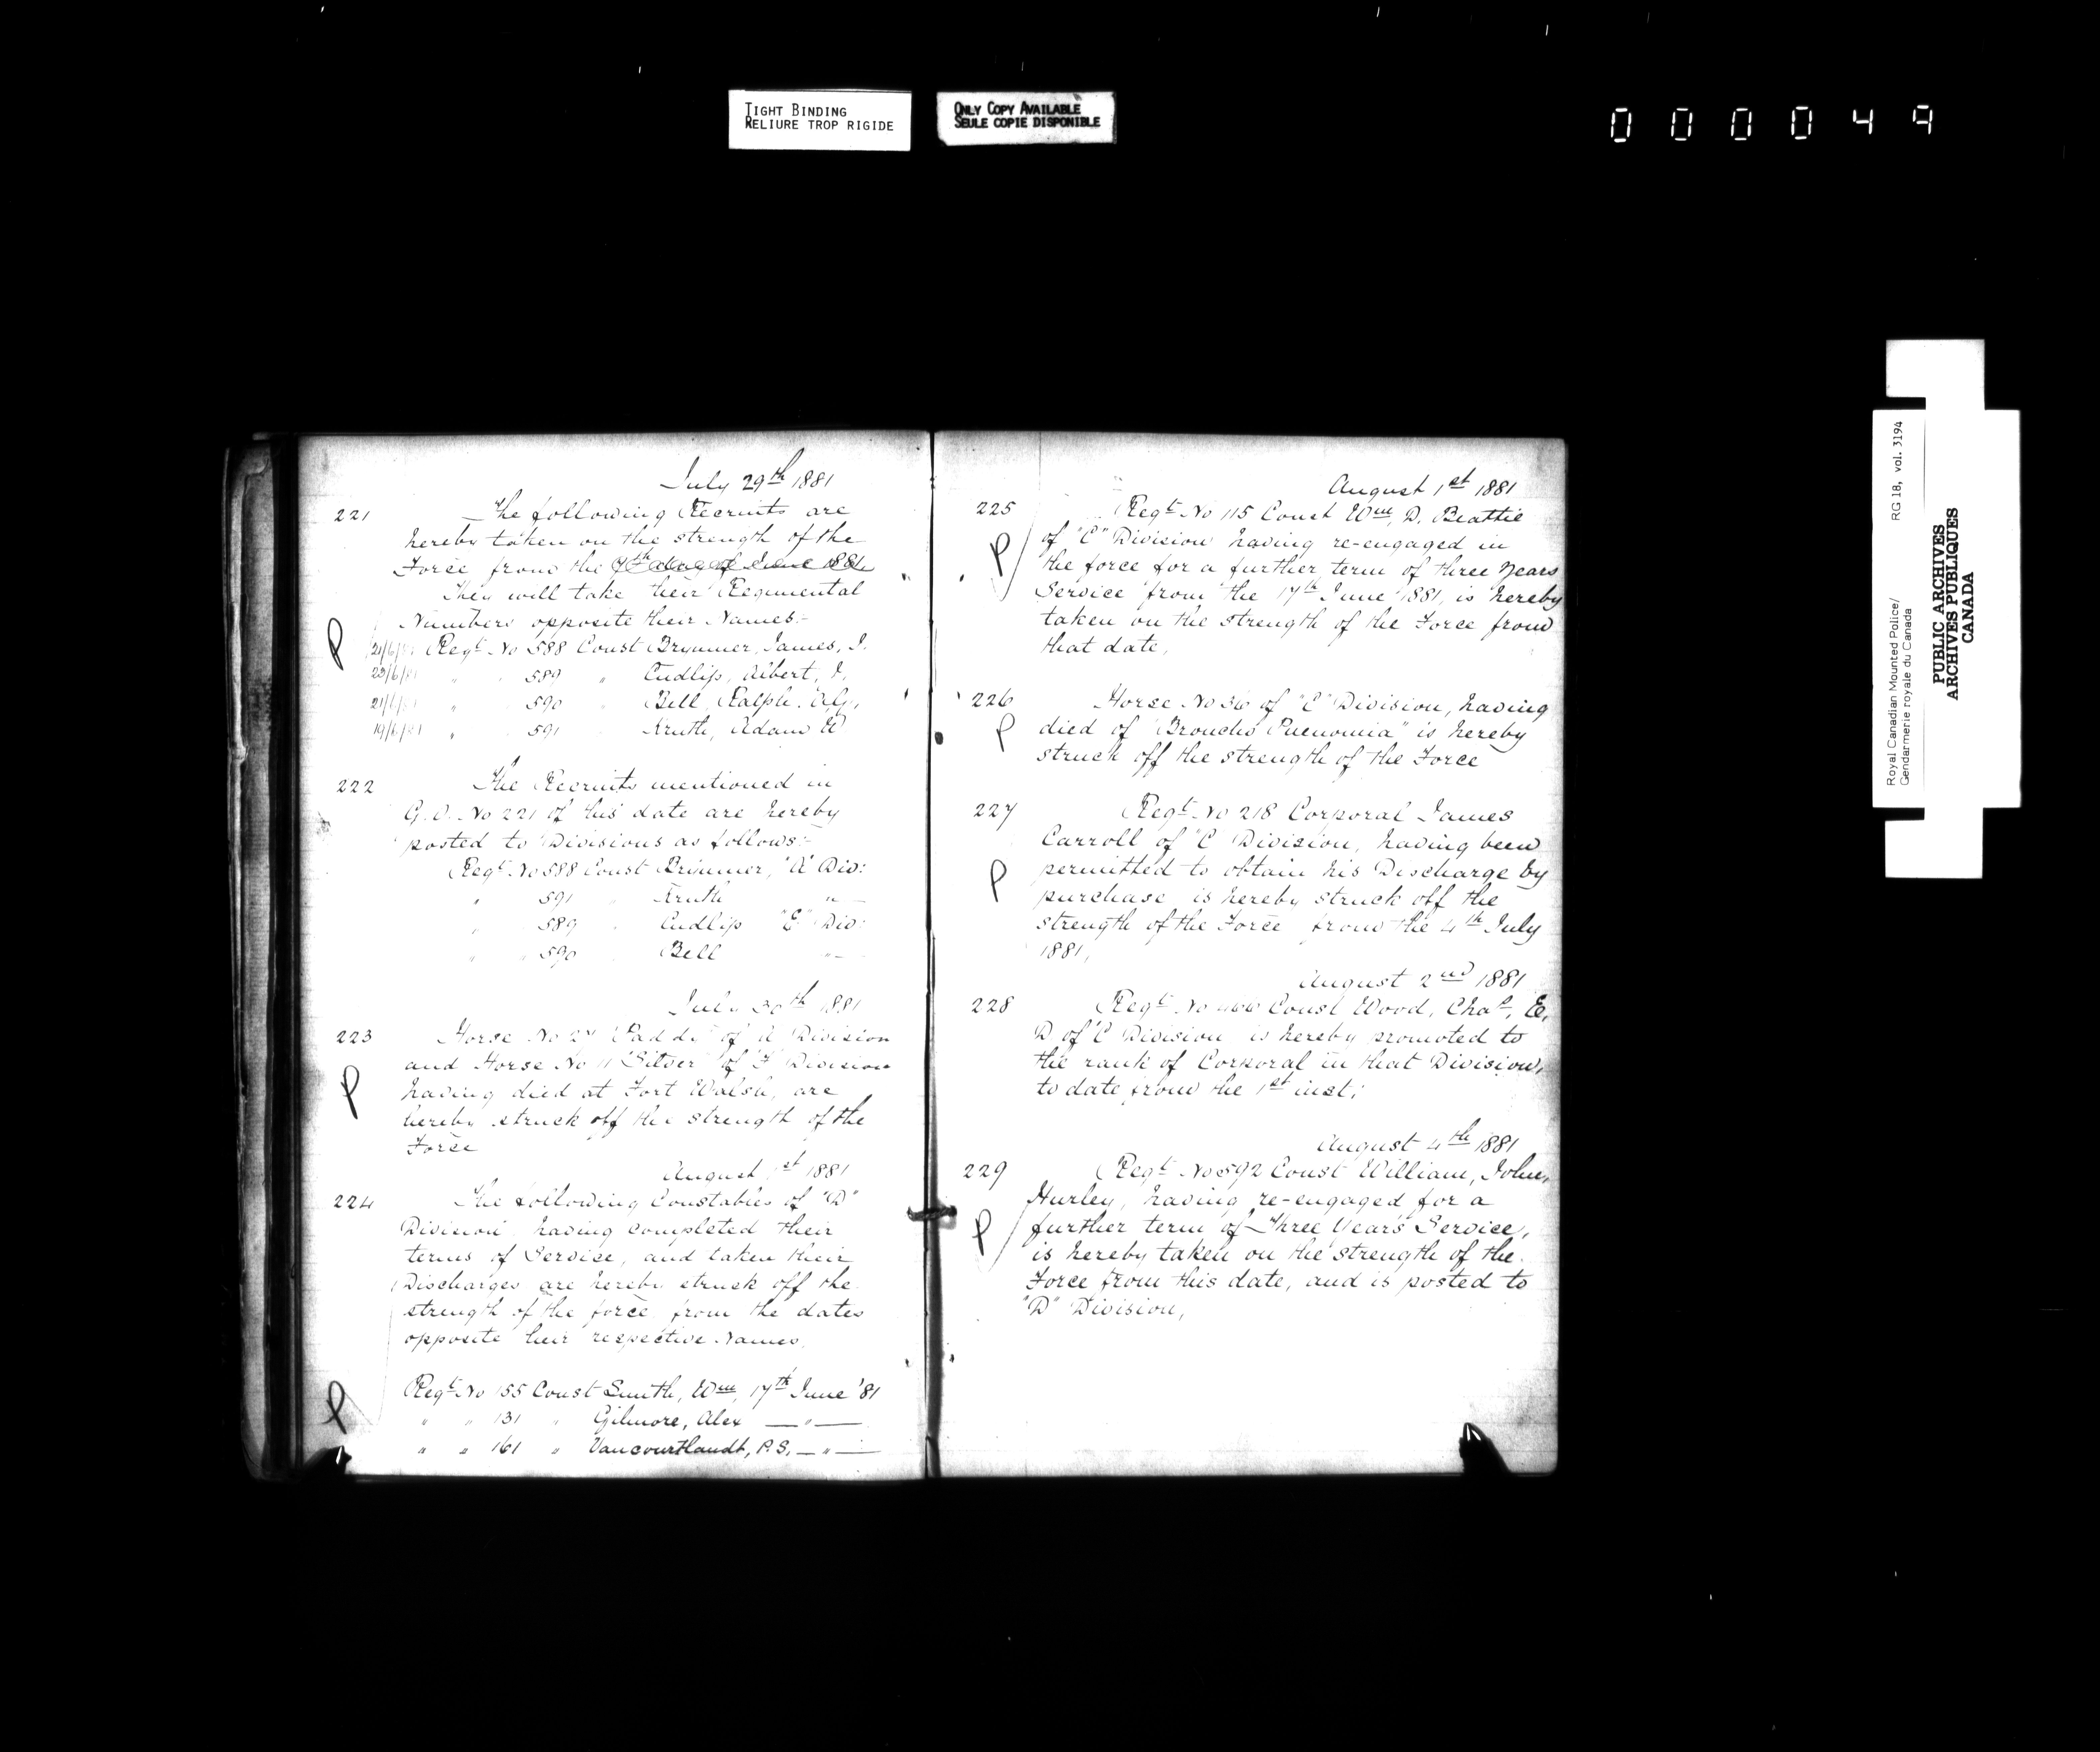 TIGHT BINDING
RELIURE TROP RIGIDE
ONLY COPY AVAILABLE
SEULE COPIE DISPONIBLE
000049
July 29th 1881
221 The following Recruits are
hereby taken on the strength of the
Force from the day of June 1881
They will take their Regimental
Numbers opposite their Names:-
Regt No 588 Const Brymner, James, J.
23/6/81 " " 589 " Cudlip, Albert, J.
21/6/81 " 590 " Bell, Ralph. Alg.
19/6/81 " 591 Kruth, Adam W.
222 The Recruits mentioned in
G.O. No 221 of this date are hereby
posted to Divisions as follows:-
Regt No 588 Const Brimner, "A" Div:
" 591 " Kruth "
" 589 " Cudlip "E" Div:
" " 590 Bell "
July 30th 1881
223 Horse No 27 "Paddy" of "A" Division
and Horse No 11 "Silver" of "F" Division
having died at Fort Walsh, are
hereby struck off the strength of the
Force
August 1st 1881
224 The following Constables of "D"
Division having completed their
terms of Service, and taken their
Discharges are hereby struck off the
strength of the force from the dates
opposite their respective Names.
Regt No 155 Const Smith, Wm, 17th June '81
" " 131 " Gilmore, Alex — " —
" " 161 " Vancourtlandt, P.S. — " —
August 1st 1881
225 Regt No 115 Const Wm, D. Beattie
of "E" Division having re-engaged in
the force for a further term of three years
Service from the 17th June 1881, is hereby
taken on the strength of the Force from
that date,
226 Horse No 36 of "E" Division, having
died of "Broncho Pneunomia" is hereby
struck off the strength of the Force
227 Regt No 218 Corporal James
Carroll of "C" Division, having been
permitted to obtain his Discharge by
purchase is hereby struck off the
strength of the Force from the 4th July
1881,
August 2nd 1881
228 Regt No Const Wood, Chas, E,
D of "C" Division is hereby promoted to
the rank of Corporal in that Division,
to date from the 1st inst;
August 4th 1881
229 Regt No 592 Const William, John,
Hurley, having re-engaged for a
further term of Three Year's Service,
is hereby taken on the strength of the
Force from this date, and is posted to
"D" Division,
Royal Canadian Mounted Police/ RG 18, vol. 3194
Gendarmerie royale du Canada
PUBLIC ARCHIVES
ARCHIVES PUBLIQUES
CANADA